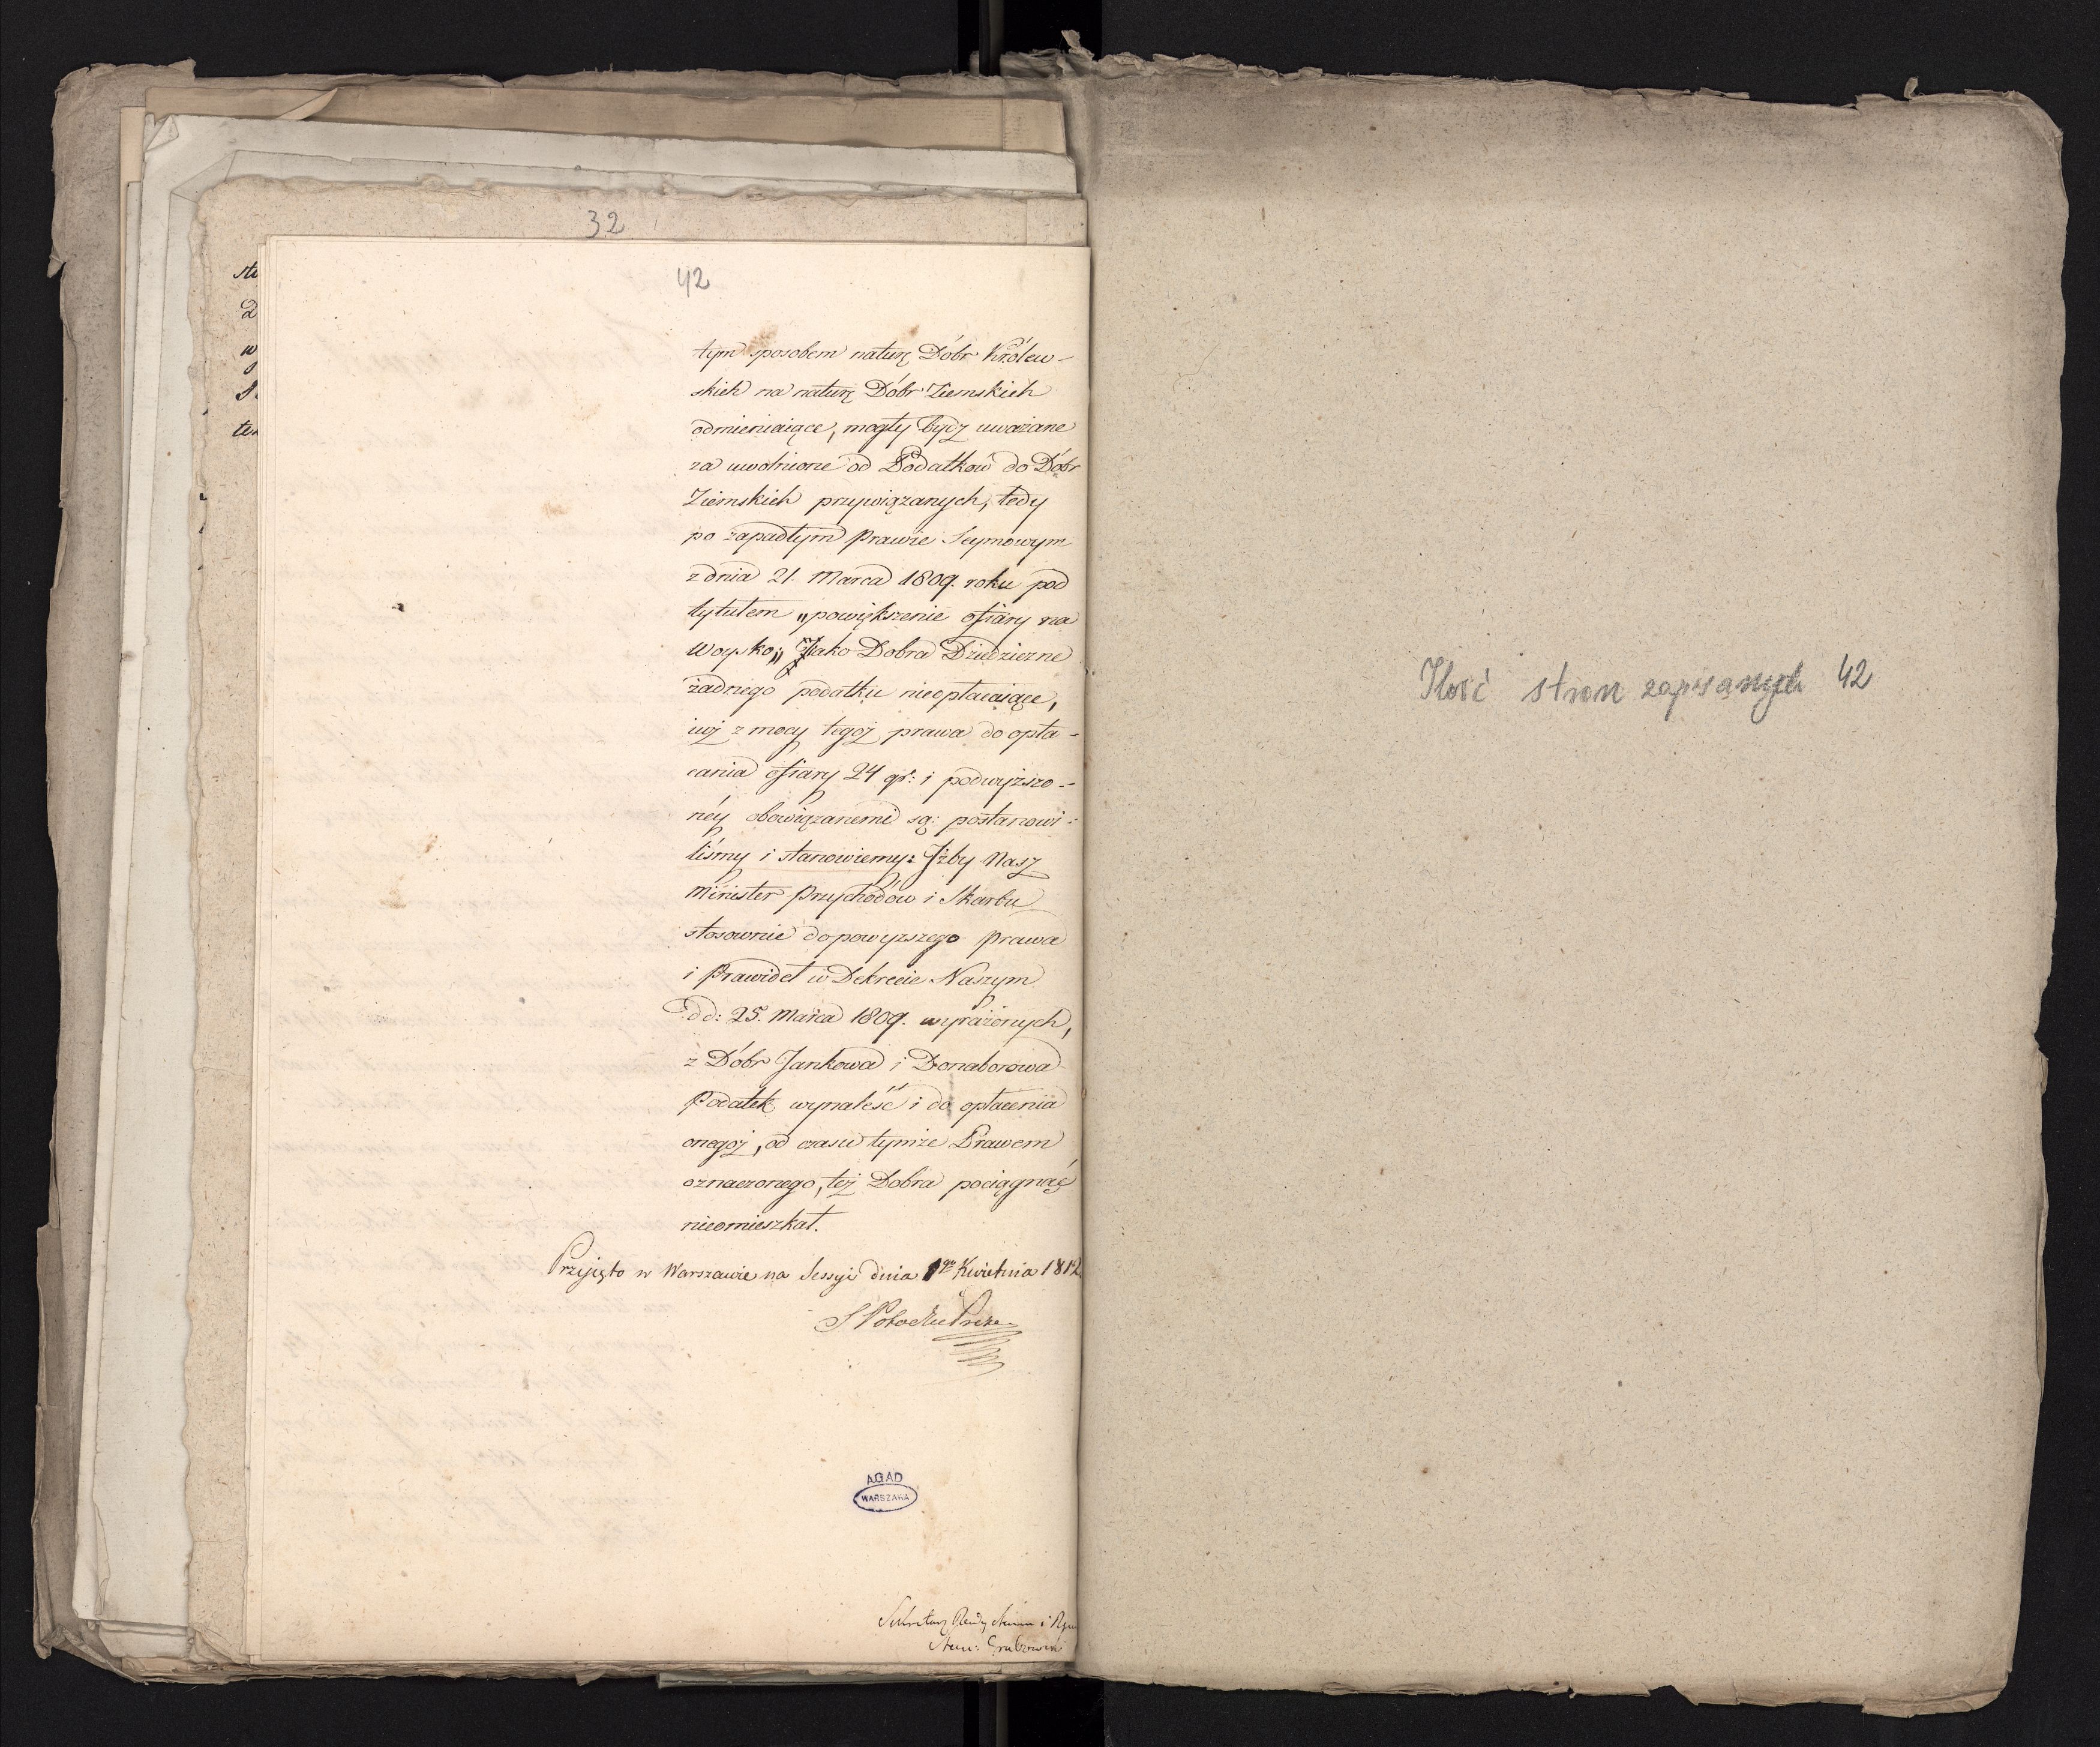 32
42
tym sposobem naturę Dóbr Królew-
skich na naturę Dóbr Ziemskich
odmieniaiące, mogły bydź uważane
za uwolnione od Podatków do Dóbr
Ziemskich przywiązanych, tedy
po zapadłym Prawie Seymowym
z dnia 21. Marca 1809. roku pod
tytułem „powiększenie ofiary na
Woysko„ Jako Dobra Dziedziczne
żadnego podatku nieopłacaiące,
iuż z mocy tegoż prawa do opła-
cania ofiary 24 gr: i podwyższo-
néy obowiązanemi są: postanowi-
liśmy i stanowiemy: Jżby Nasz
Minister Przychodów i Skarbu
stosownie do powyższego Prawa
i Prawideł w Dekrecie Naszym
dd: 25. Marca 1809. wyrażonych,
z Dóbr Jankowa i Donaborowa
Podatek wynaleść i do opłacenia
onegoż, od czasu tymże Prawem
oznaczonego, też Dobra pociągnąć
nieomieszkał.
Przyjęto w Warszawie na Sessyi dnia 1go Kwietnia 1812
S Potocki Preze
AGAD
WARSZAWA
Sekretarz Rady Stanu i
Stan: Grabowski
Ilość stron zapisanych 42